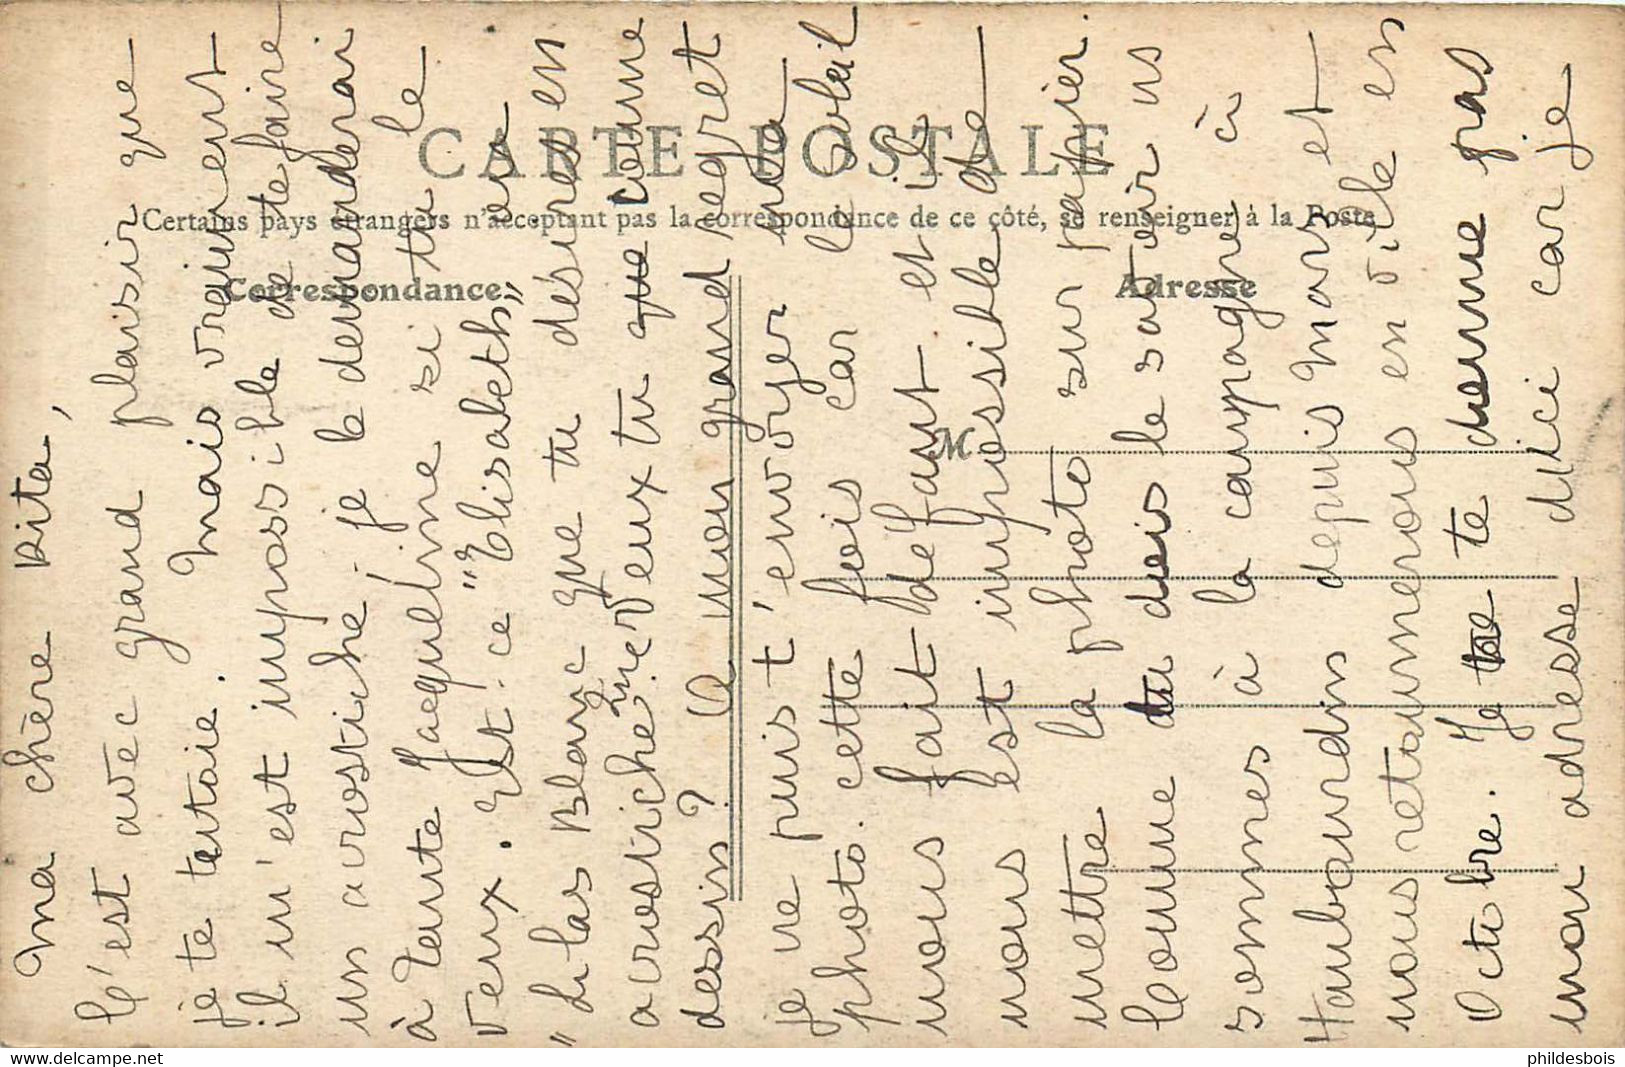 CARTE POSTALE
Certains pays étrangers n'acceptent pas la correspondance de ce côté, se renseigner à la Poste
Correspondance
Adresse
M
Ma chère Rita,
C'est avec grand plaisir que
je te tutoie. Mais vraiment
il m'est impossible de te faire
un acrostiche. je le demanderai
à Tante Jacqueline si tu le
veux. Est-ce "Elisabeth" ou
"Lilas Blanc que tu désires en
acrostiche. Me veux tu que comme
dessin? A mon grand regret
je ne puis t'envoyer ma
photo. cette fois car le soleil
nous fait défaut et il
nous est impossible de
mettre la photo sur papier.
Comme tu dois le savoir ns
sommes à la campagne à
Haubourdin depuis Mars et
nous retournerons en ville en
Octobre. Je te te donne pas
mon adresse d'ici car je
phildesbois